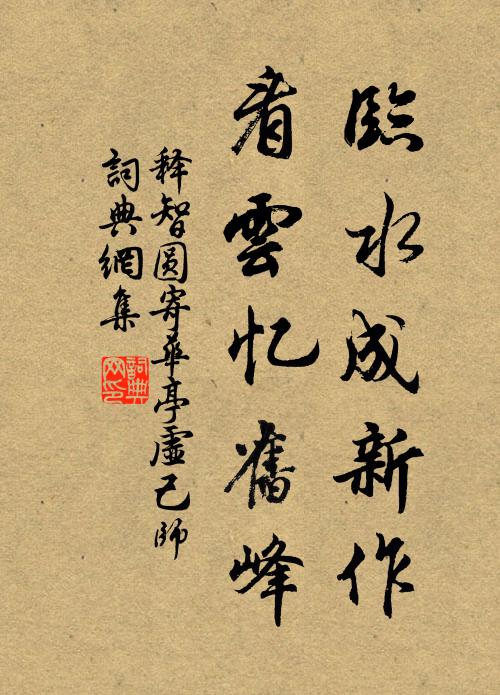 臨水成新作
看雲忆舊峰
释智圆寄華亭虛己師
詞典網集
詞典網印